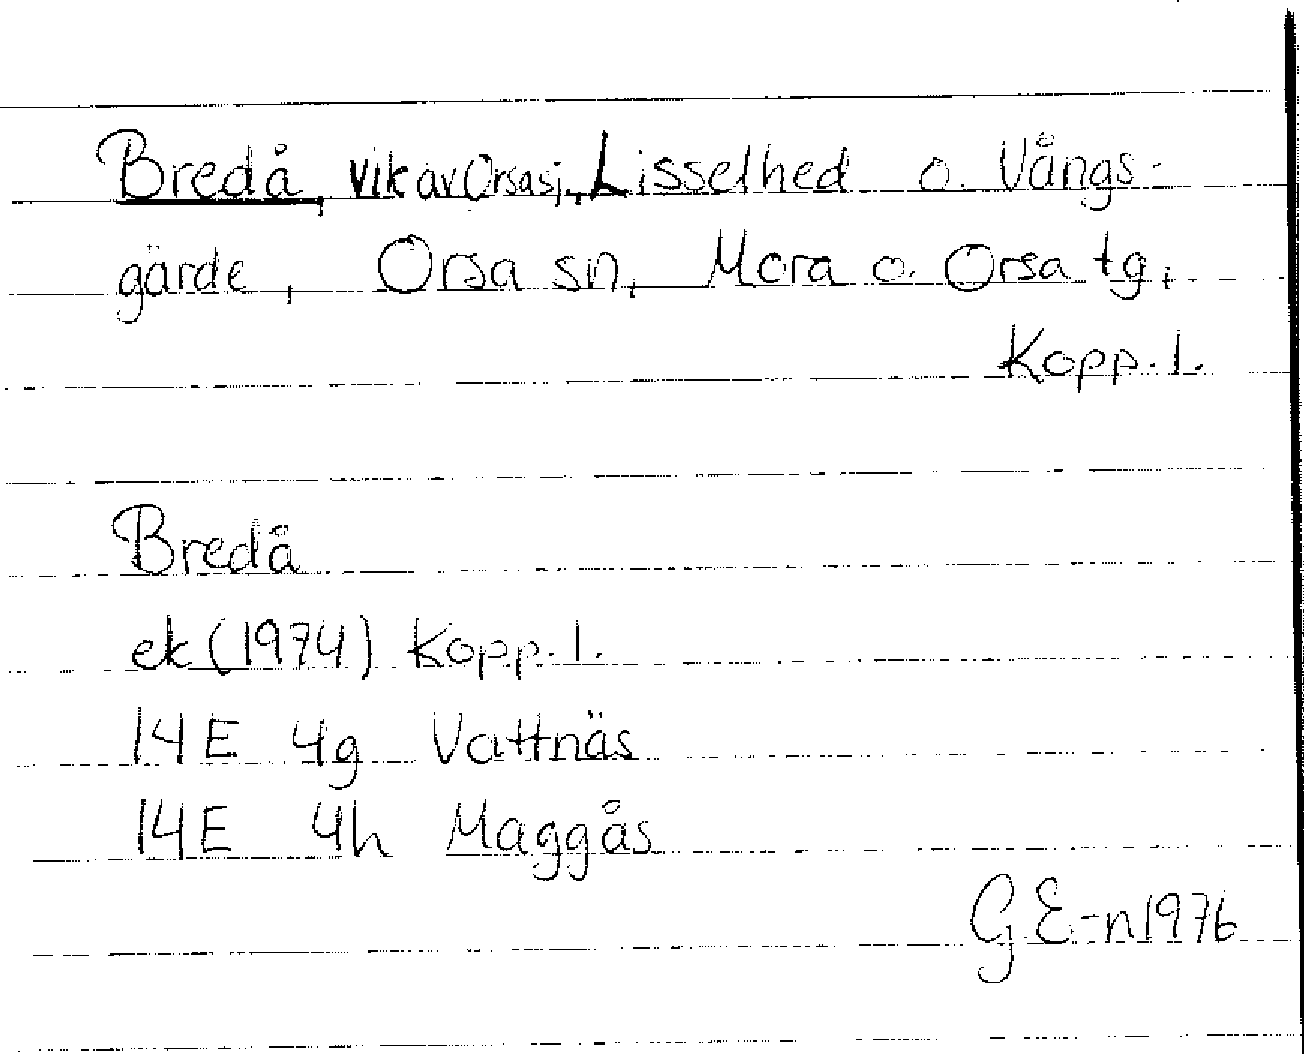 Bredå, vik av Orsasj., Lisselhed o. Vångs-
gärde, Orsa sn, Mora o. Orsa tg,
Kopp. l.
Bredå
ek (1974) Kopp. l.
14E 4g Vattnäs
14E 4h Maggås
G E-n 1976